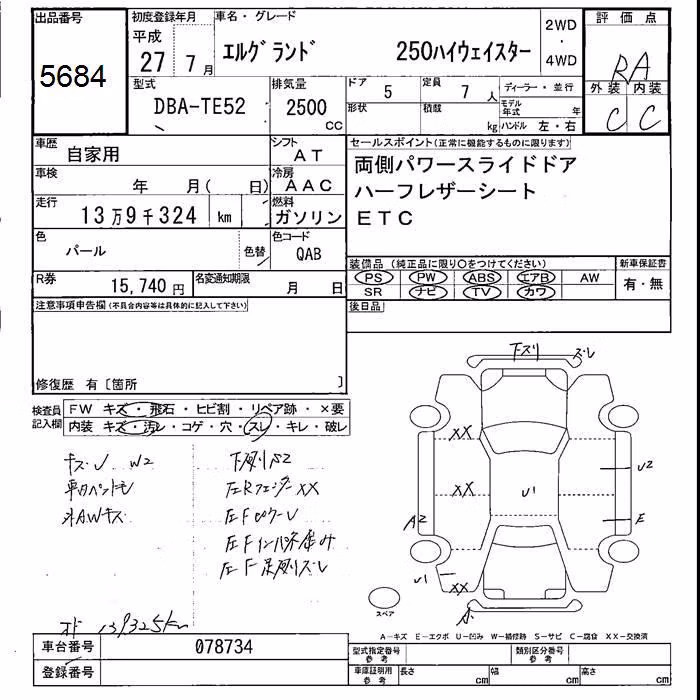 出品番号
5684
初度登録年月
平成
27 7月
車名・グレード
エルグランド 250ハイウェイスター
2WD
・
4WD
評価点
RA
外装 内装
C C
型式
DBA-TE52
排気量
2500
CC
ドア
5
定員
7人
形状
積載
kg
ディーラー・並行
モデル
年式
年
ハンドル 左・右
車歴
自家用
シフト
AT
セールスポイント(正常に機能するものに限ります)
両側パワースライドドア
ハーフレザーシート
ETC
車検
年 月( 日)
冷房
AAC
走行
13万9千324 km
燃料
ガソリン
色
パール
色替
色コード
QAB
装備品(純正品に限り○をつけてください)
PS PW ABS エアB AW
SR ナビ TV カワ
新車保証書
有・無
R券
15,740円
名変通知期限
月 日
後日品
注意事項申告欄(不具合内容等は具体的に記入して下さい)
修復歴 有〔箇所 〕
検査員
記入欄
FW キズ・飛石・ヒビ割・リペア跡・×要
内装 キズ・汚レ・コゲ・穴・スレ・キレ・破レ
キズ・U W2
外AWキズ
左Rフェンダー XX
下スリ
ズレ
XX
XX
U1
U2
A2
E
U1
XX
A
スペア
139325km
A-キズ E-エクボ U-凹み W-補修跡 S-サビ C-腐食 XX-交換済
車台番号
078734
登録番号
型式指定番号
参考
類別区分番号
参考
車庫証明用
参考
長さ cm
幅 cm
高さ cm